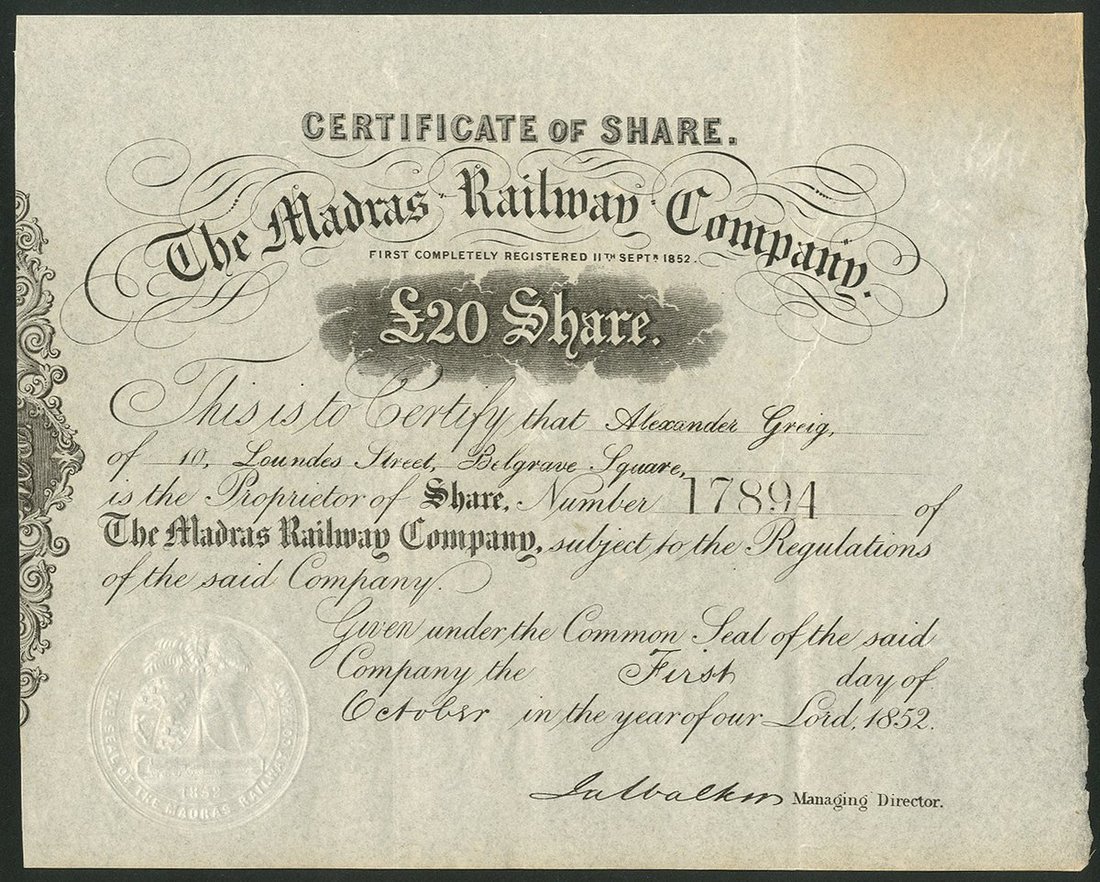 CERTIFICATE OF SHARE.
The Madras Railway Company.
FIRST COMPLETELY REGISTERED 11TH SEPTR 1852.
£20 Share.
This is to Certify that Alexander Greig,
of 10, Loundes Street, Belgrave Square,
is the Proprietor of Share, Number 17894 of
The Madras Railway Company, subject to the Regulations
of the said Company.
Given under the Common Seal of the said
Company the First day of
October in the year of our Lord, 1852.
Managing Director.
THE SEAL OF THE MADRAS RAILWAY COMPANY
1852